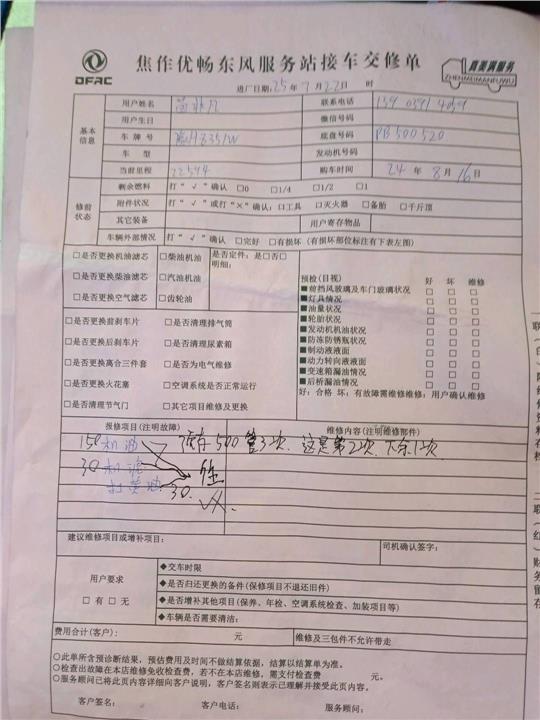 DFAC
焦作优畅东风服务站接车交修单
真美满服务
ZHENMEIMANFUWU
进厂日期: 25 年 7 月 22 日 时
基本信息
用户姓名 联系电话 159 0391 4059
用户生日 微信号码
车牌号 底盘号码 PB500520
车型 发动机号码
当前里程 22594 购车时间 24 年 8 月 16 日
修前状态
剩余燃料 打“√”确认 □0 □1/4 □1/2 □1
附件状况 打“√”或打“×”确认: □工具 □灭火器 □备胎 □千斤顶
其它装备 用户寄存物品
车辆外部情况 打“√”确认 □完好 □有损坏 (有损坏部位标注有下表左图)
□是否更换机油滤芯 □柴油机油
□是否更换柴油滤芯 □汽油机油
□是否更换空气滤芯 □齿轮油
□是否更换前刹车片 □是否清理排气筒
□是否更换后刹车片 □是否清理尿素箱
□是否更换离合三件套 □是否为电气维修
□是否更换火花塞 □空调系统是否正常运行
□是否清理节气门 □其它项目维修及更换
是否定件: 是□否□
明细:
预检(目视) 好 坏 维修
■前挡风玻璃及车门玻璃状况 □ □ □
■灯具情况 □ □ □
■油量状况 □ □ □
■轮胎状况 □ □ □
■发动机机油状况 □ □ □
■防冻防锈瓶状况 □ □ □
■制动液液面 □ □ □
■动力转向液液面 □ □ □
■变速箱漏油情况 □ □ □
■后桥漏油情况 □ □ □
好: 合格 坏: 有故障需维修维修: 用户确认维修
报修项目(注明故障) 维修内容(注明维修部件)
150 机油 预存500管3次. 这是第2次. 下余1次
30 机滤
打黄油 30.
建议维修项目或增补项目: 司机确认签字:
用户要求
□有 □无
◆交车时限
◆是否归还更换的备件(保修项目不退还旧件)
◆是否增补其他项目(保养、年检、空调系统检查、加装项目等)
◆车辆是否需要清洁:
费用合计(客户): 元 维修及三包件不允许带走
○此单所含预诊断结果, 预估费用及时间不做结算依据, 结算以结算单为准。
○检查出故障在本店维修免收检查费, 若不在本店维修, 需支付检查费 元。
○服务顾问已将此页内容详细向客户说明, 客户签名则表示已理解并接受此页内容。
客户签名: 客户电话: 服务顾问: